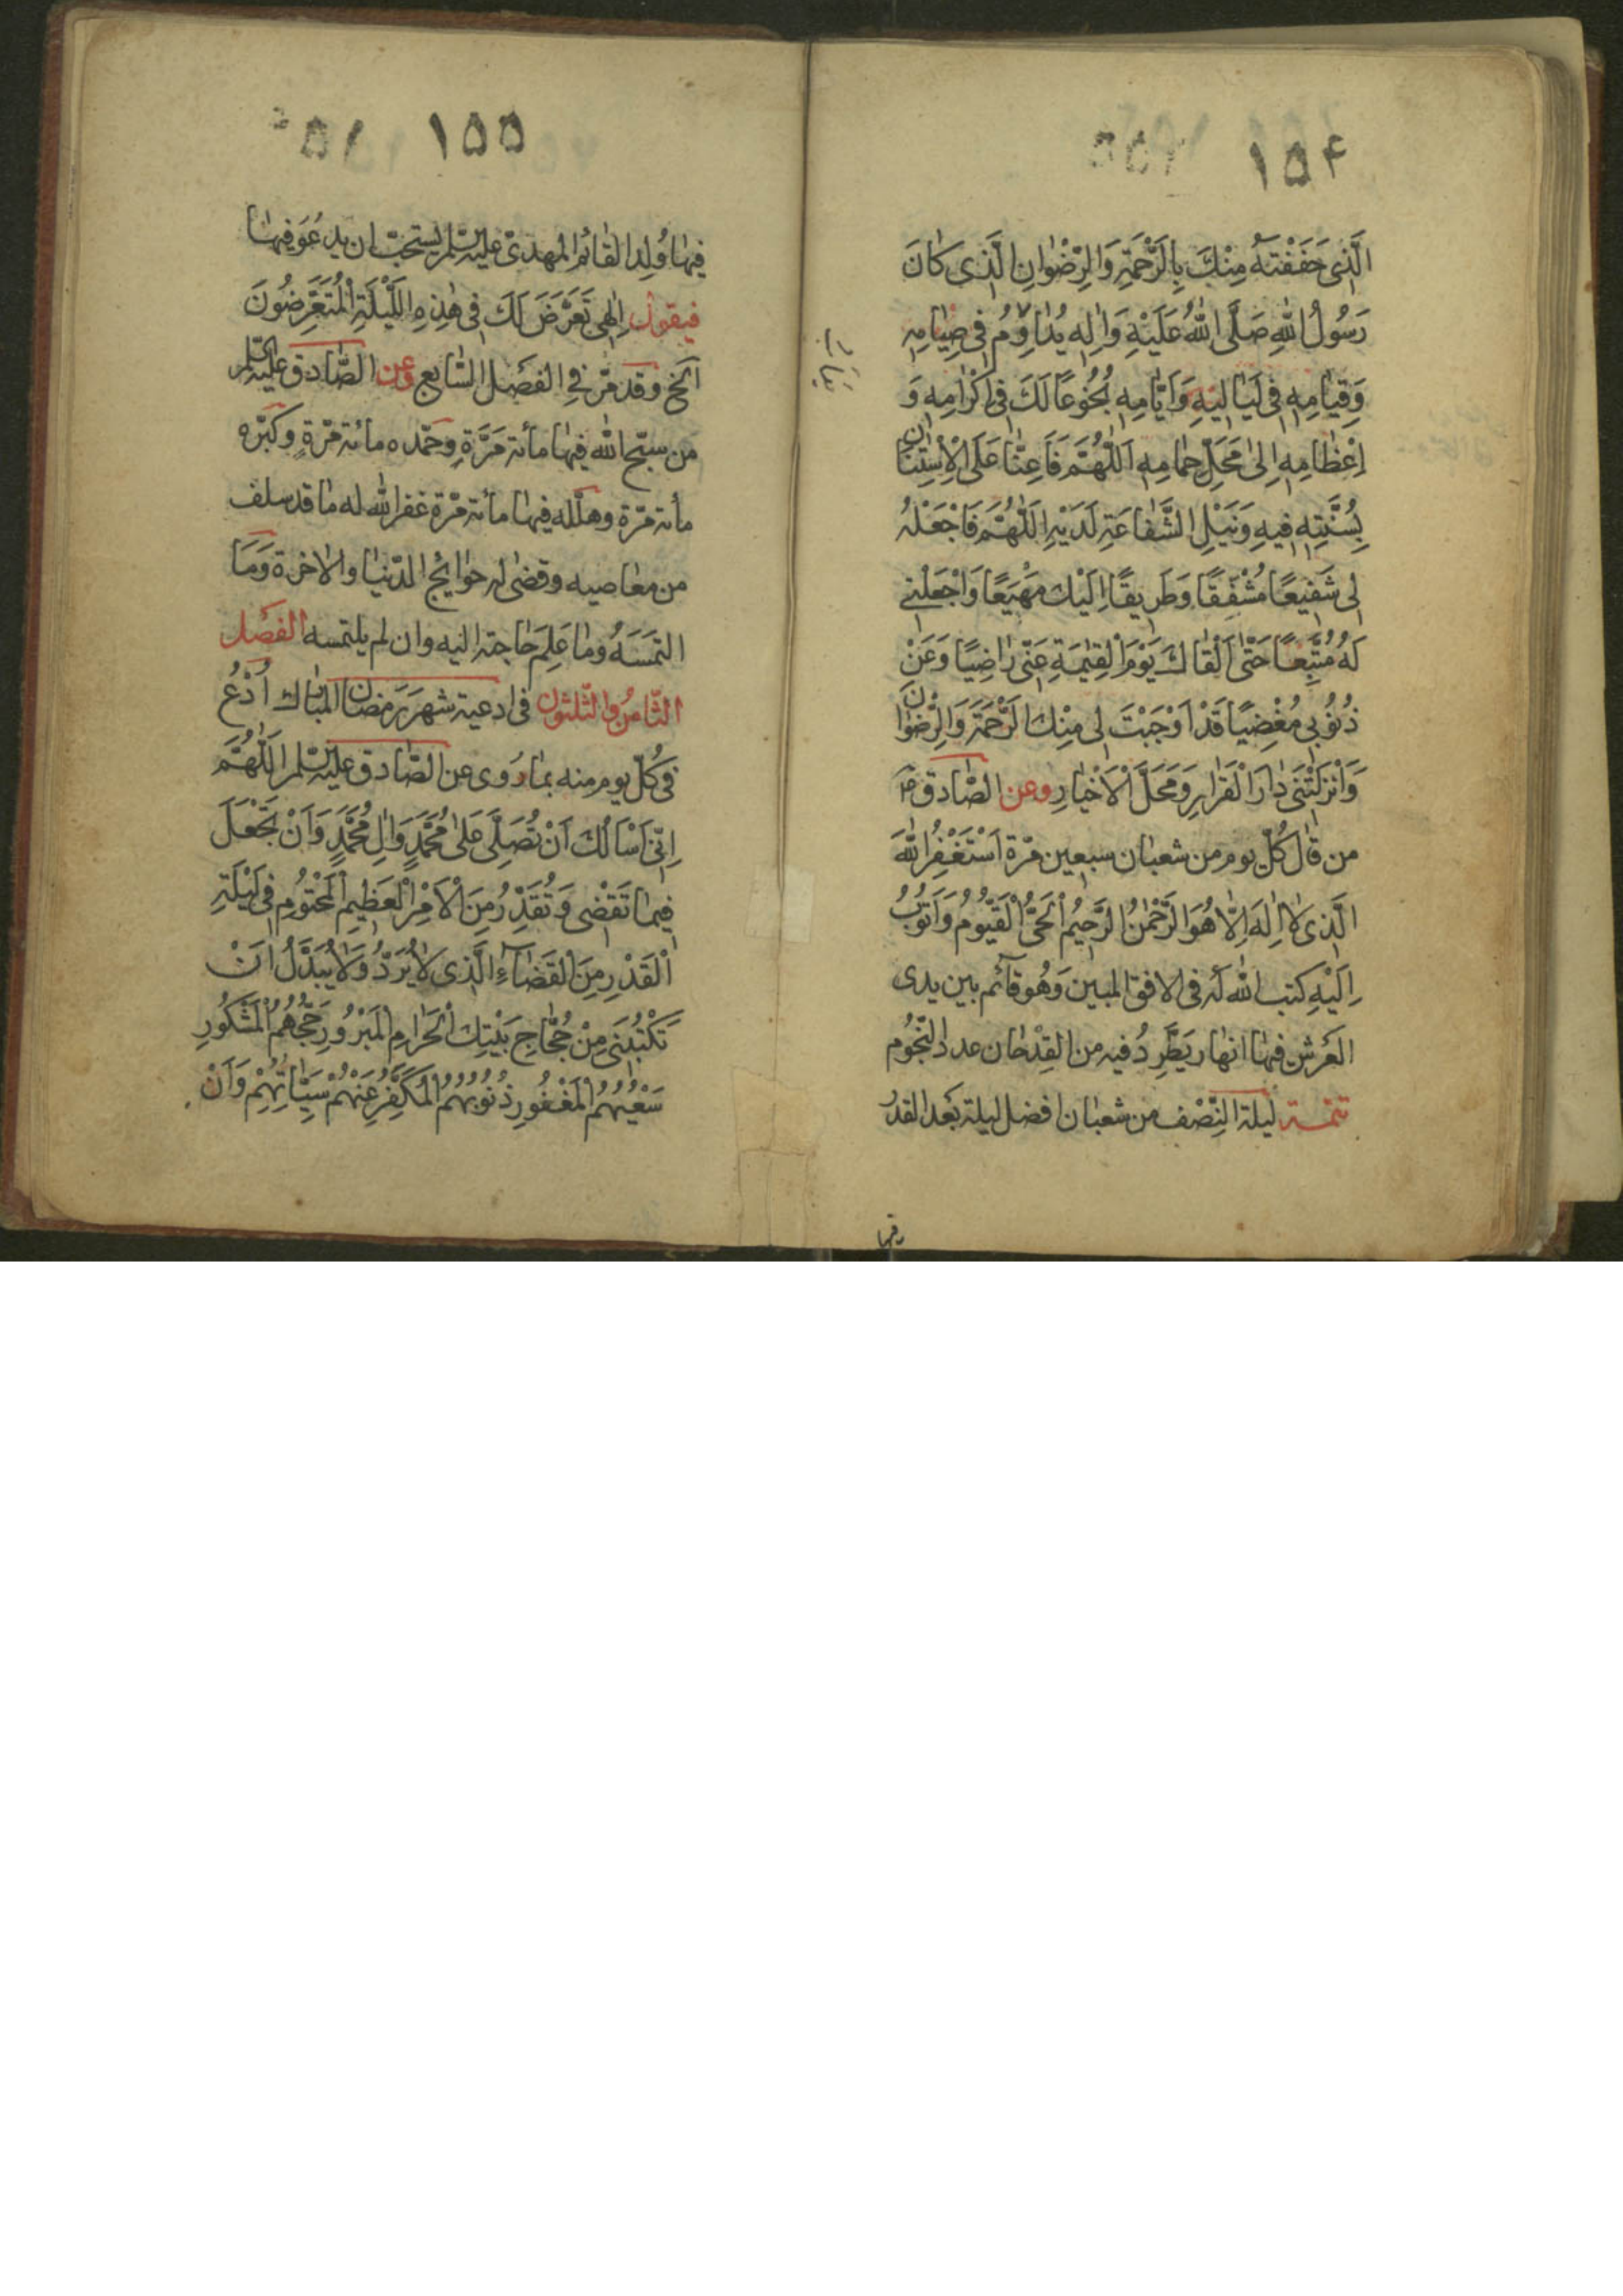 ١٥٤
الَّذِى حَفَفْتَهُ مِنْكَ بِالرَّحْمَةِ وَالرِّضْوانِ الَّذِى كانَ
رَسُولُ اللهِ صَلَّى اللهُ عَلَيْهِ وَالِهِ يُداوِمُ فى صِيامِهِ
وَقِيامِهِ فى لَيالِيهِ وَاَيّامِهِ بُخُوعًا لَكَ فى اِكْرامِهِ وَ
اِعْظامِهِ اِلى مَحَلِّ حِمامِهِ اَللّهُمَّ فَاَعِنّا عَلَى الْاِسْتِنانِ
بِسُنَّتِهِ فيهِ وَنَيْلِ الشَّفاعَةِ لَدَيْهِ اَللّهُمَّ فَاجْعَلْهُ
لى شَفيعًا مُشَفَّقًا وَطَريقًا اِلَيْكَ مَهْيَعًا وَاجْعَلْنى
لَهُ مُتَّبِعًا حَتّى اَلْقاكَ يَوْمَ الْقِيمَةِ عَنّى راضِيًا وَعَنْ
ذُنُوبى مُغْضِيًا قَدْ اَوْجَبْتَ لى مِنْكَ الرَّحْمَةَ وَالرِّضْوانَ
وَاَنْزَلْتَنى دارَ الْقَرارِ وَمَحَلَّ الْاَخْيارِ وعن الصّادق ع
من قال كُلّ يوم من شعبان سبعين مرّة اَسْتَغْفِرُ اللهَ
الَّذى لا اِلهَ اِلّا هُوَ الرَّحْمنُ الرَّحيمُ الْحَىُّ الْقَيُّومُ وَاَتُوبُ
اِلَيْهِ كتب الله له فى الافق المبين وَهُو قآئم بين يدى
العَرش فيها انهار يَطَّرِدُ فيه من القِدْحان عدد النّجُوم
تتمة ليلة النِّصْف من شعبان افضل ليلة بَعد القدر
١٥٥
فيها وُلِد القائم المهدىّ عليه السلم يستحبّ ان يدعُوَ فيها
فيقول اِلهى تَعَرَّضَ لَكَ فى هذِهِ اللَّيْلَةِ الْمُتَعَرِّضُونَ
الخ وقد مرّ فى الفصل السّابع وعن الصّادق عليه السلم
من سبّح الله فيها مأئة مَرَّةٍ وحمّده مائة مرّةٍ وكبّره
مأئة مرّة وهلّله فيها مأئة مرّة غفر الله له ما قد سلف
من معاصيه وقضى له حوائج الدّنيا والاخرة وَمَا
التمَسَهُ وما عَلِمَ حاجته اليه وان لم يلتمسه الفصل
الثّامن والثلثون فى ادعية شهر رَمَضان المبارك اُدْعُ
فى كُلّ يوم منه بما رُوى عن الصّادق عليه السلم اَللّهُمَّ
اِنّى اَسْاَلُكَ اَنْ تُصَلِّىَ عَلى مُحَمَّدٍ وَالِ مُحَمَّدٍ وَاَنْ تَجْعَلَ
فيما تَقْضى وَتُقَدِّرُ مِنَ الْاَمْرِ الْعَظيمِ الْمَحْتُومِ فى لَيْلَةِ
الْقَدْرِ مِنَ الْقَضآءِ الَّذى لا يُرَدُّ وَلا يُبَدَّلُ اَنْ
تَكْتُبَنى مِنْ حُجّاجِ بَيْتِكَ الْحَرامِ الْمَبْرُورِ حَجُّهُمُ الْمَشْكُورِ
سَعْيُهُمُ الْمَغْفُورِ ذُنُوبُهُمُ الْمُكَفَّرِ عَنْهُمْ سَيِّئاتُهُمْ وَاَنْ